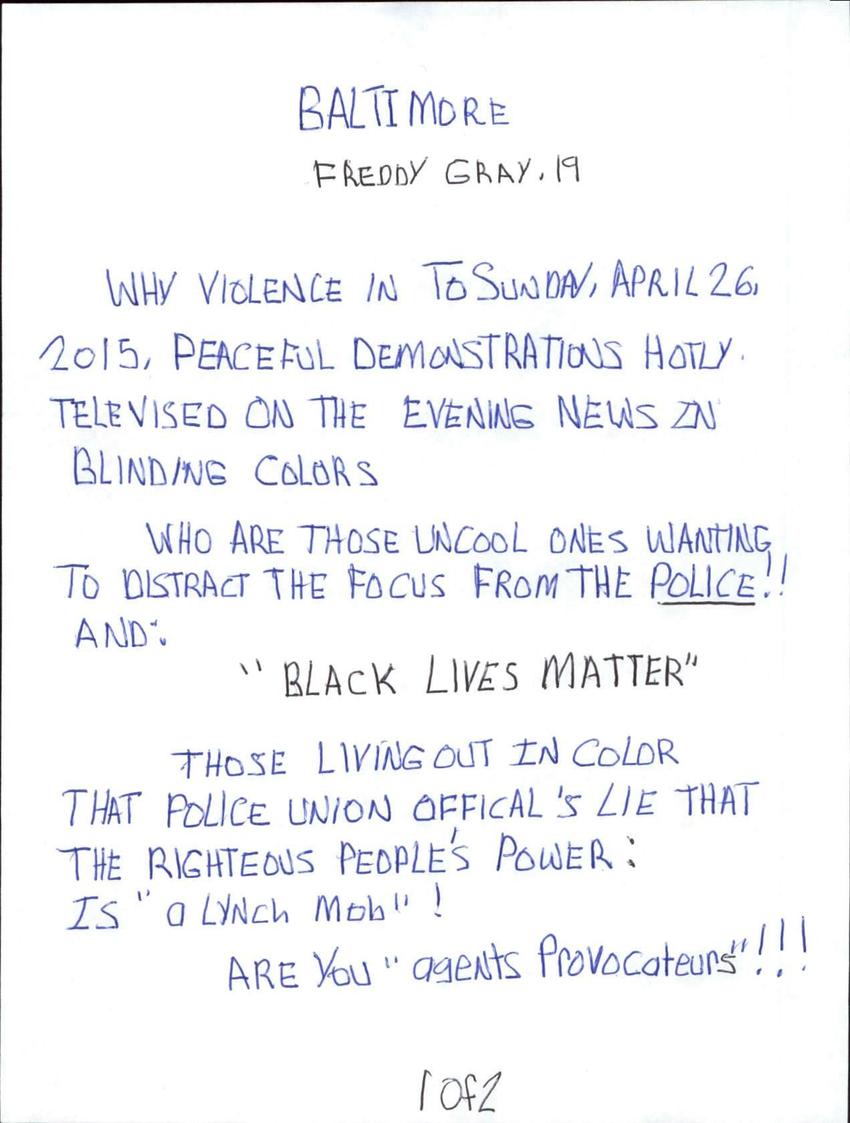 BALTIMORE
FREDDY GRAY, 19
WHY VIOLENCE IN TO SUNDAY, APRIL 26,
2015, PEACEFUL DEMONSTRATIONS HOTLY.
TELEVISED ON THE EVENING NEWS IN
BLINDING COLORS
WHO ARE THOSE UNCOOL ONES WANTING
TO DISTRACT THE FOCUS FROM THE POLICE!!
AND:
"BLACK LIVES MATTER"
THOSE LIVING OUT IN COLOR
THAT POLICE UNION OFFICAL'S LIE THAT
THE RIGHTEOUS PEOPLE'S POWER:
IS "a LYNch Mob"!
ARE YOU "agents Provocateurs"!!!
1 of 2